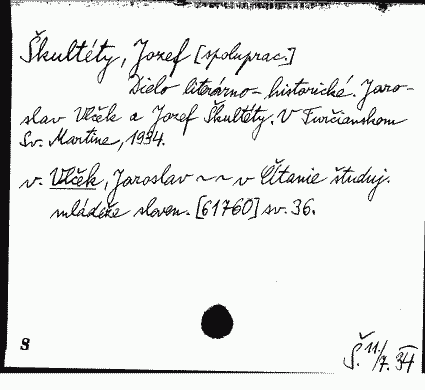 Škultéty, Jozef [spoluprac.]
Dielo literárno-historické. Jaro-
slav Vlček a Jozef Škultéty. V Turčianskom
Sv. Martine, 1934.
v. Vlček, Jaroslav ~~ v Čítanie študuj.
mládeže sloven. [61760] sv. 36.
8
Š. 11/7. 34